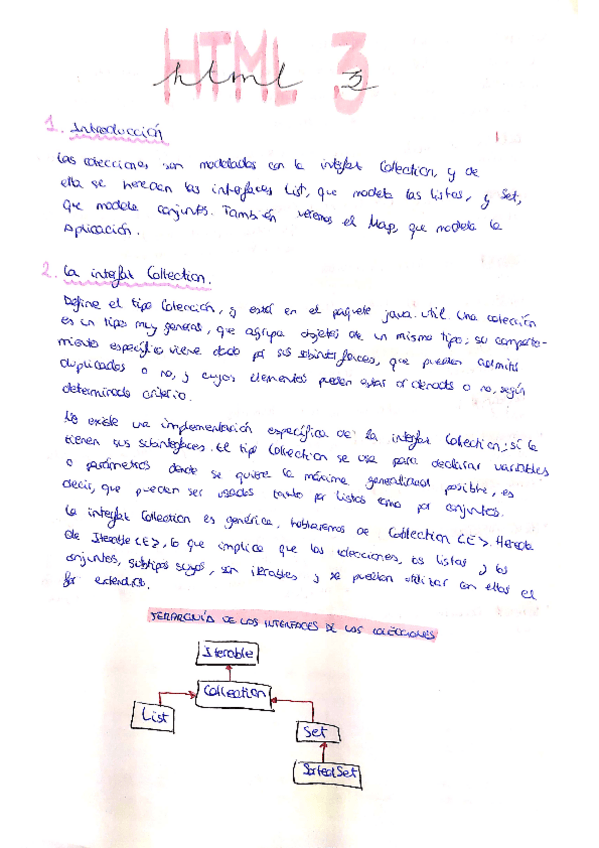 HTML 3
html 3
1. Introducción
Las colecciones son modelados con la interfaz Collection, y de
ella se heredan las interfaces List, que modela las listas, y Set,
que modela conjuntos. También veremos el Map, que modela la
Aplicación.
2. La interfaz Collection.
Define el tipo Colección, y está en el paquete java.util. Una colección
es un tipo muy general, que agrupa objetos de un mismo tipo; su comporta-
miento específico viene dado por sus subinterfaces, que pueden admitir
duplicados o no, y cuyos elementos pueden estar ordenados o no, según
determinado criterio.
No existe una implementación específica de la interfaz Collection; sí la
tienen sus subinterfaces. El tipo Collection se usa para declarar variables
o parámetros donde se quiere la máxima generalidad posible, es
decir, que puedan ser usados tanto por listas como por conjuntos.
La interfaz Collection es genérica, hablaremos de Collection <E>. Hereda
de Iterable <E>, lo que implica que las colecciones, las listas y los
conjuntos, subtipos suyos, son iterables y se pueden utilizar con ellos el
for extendido.
JERARQUÍA DE LOS INTERFACES DE LAS COLECCIONES
Iterable
Collection
List
Set
SortedSet